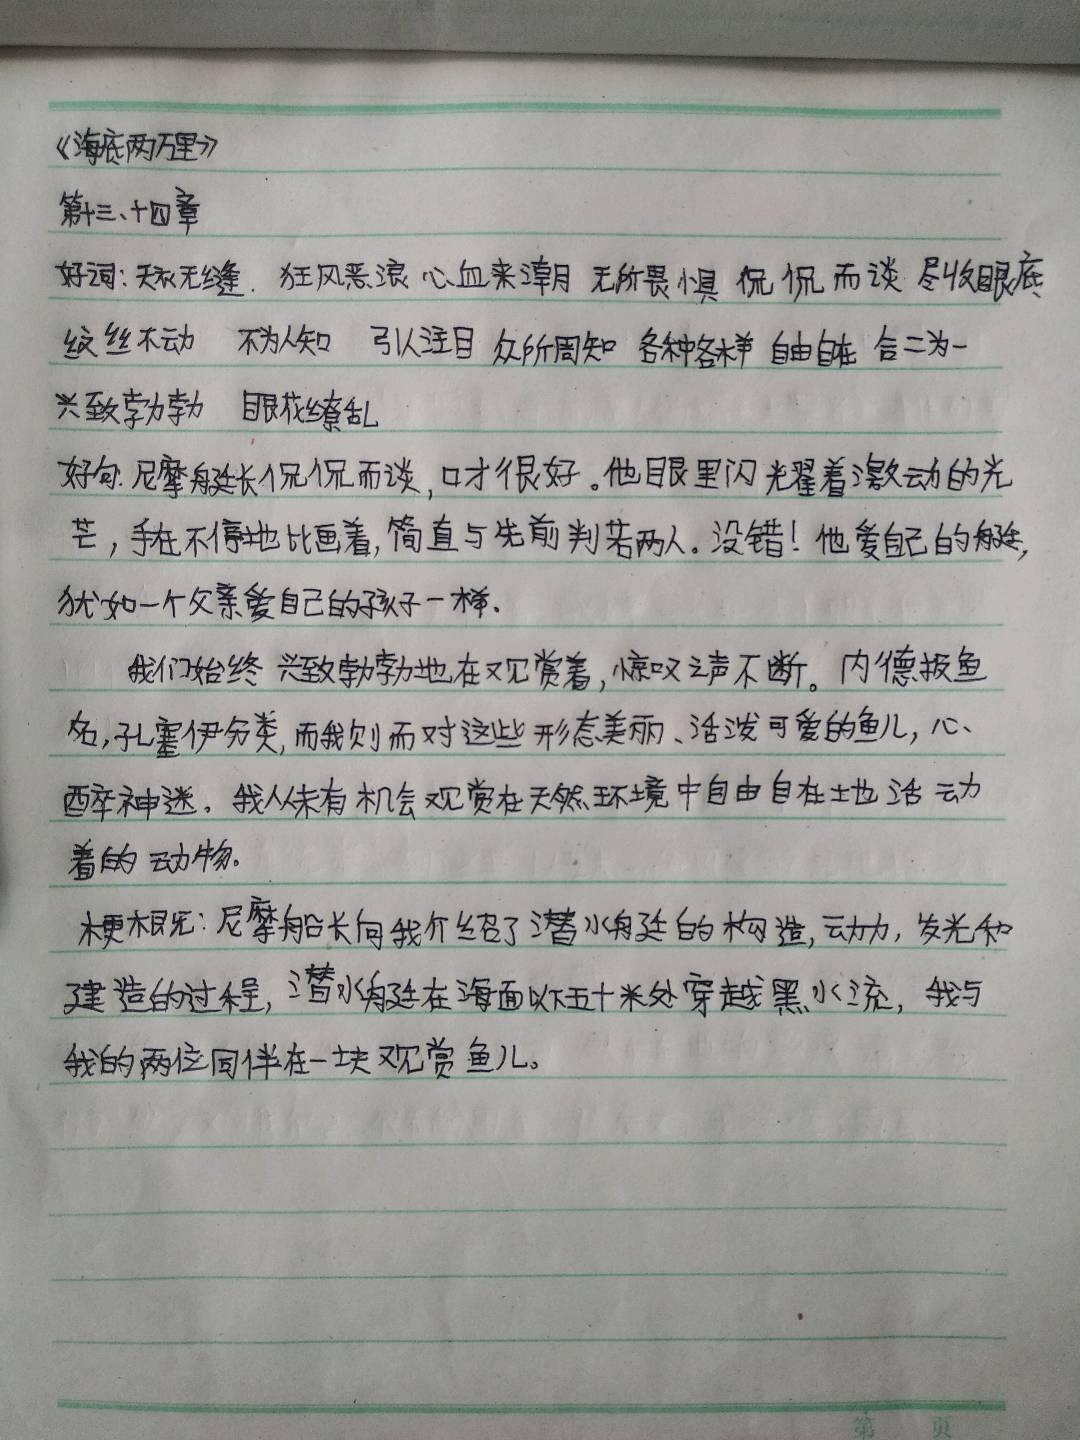 《海底两万里》
第十三、十四章
好词:天衣无缝. 狂风恶浪 心血来潮 无所畏惧 侃侃而谈 尽收眼底
纹丝不动 不为人知 引人注目 众所周知 各种各样 自由自在 合二为一
兴致勃勃 眼花缭乱
好句:尼摩艇长侃侃而谈,口才很好。他眼里闪光翟着激动的光
芒,手在不停地比画着,简直与先前判若两人。没错!他爱自己的艇,
犹如一个父亲爱自己的孩子一样.
我们始终兴致勃勃地在观赏着,惊叹之声不断。内德报鱼
名,孔塞伊分类,而我则面对这些形态美丽、活泼可爱的鱼儿,心、
醉神迷。我从未有机会观赏在天然环境中自由自在地活动
着的动物.
梗概:尼摩船长向我介绍了潜水艇的构造,动力,发光和
建造的过程,潜水艇在海面以下五十米处穿越黑水流,我与
我的两位同伴在一块观赏鱼儿。
第 页